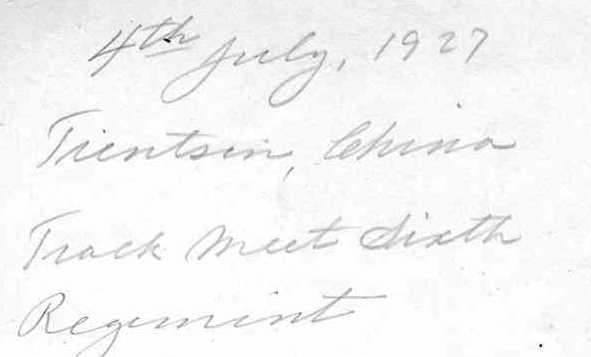 4th July, 1927
Tientsin, China
Track Meet Sixth
Regimint